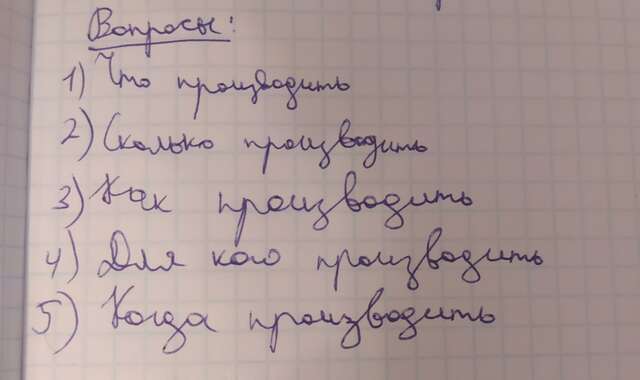 Вопросы:
1) Что производить
2) Сколько производить
3) Как производить
4) Для кого производить
5) Когда производить